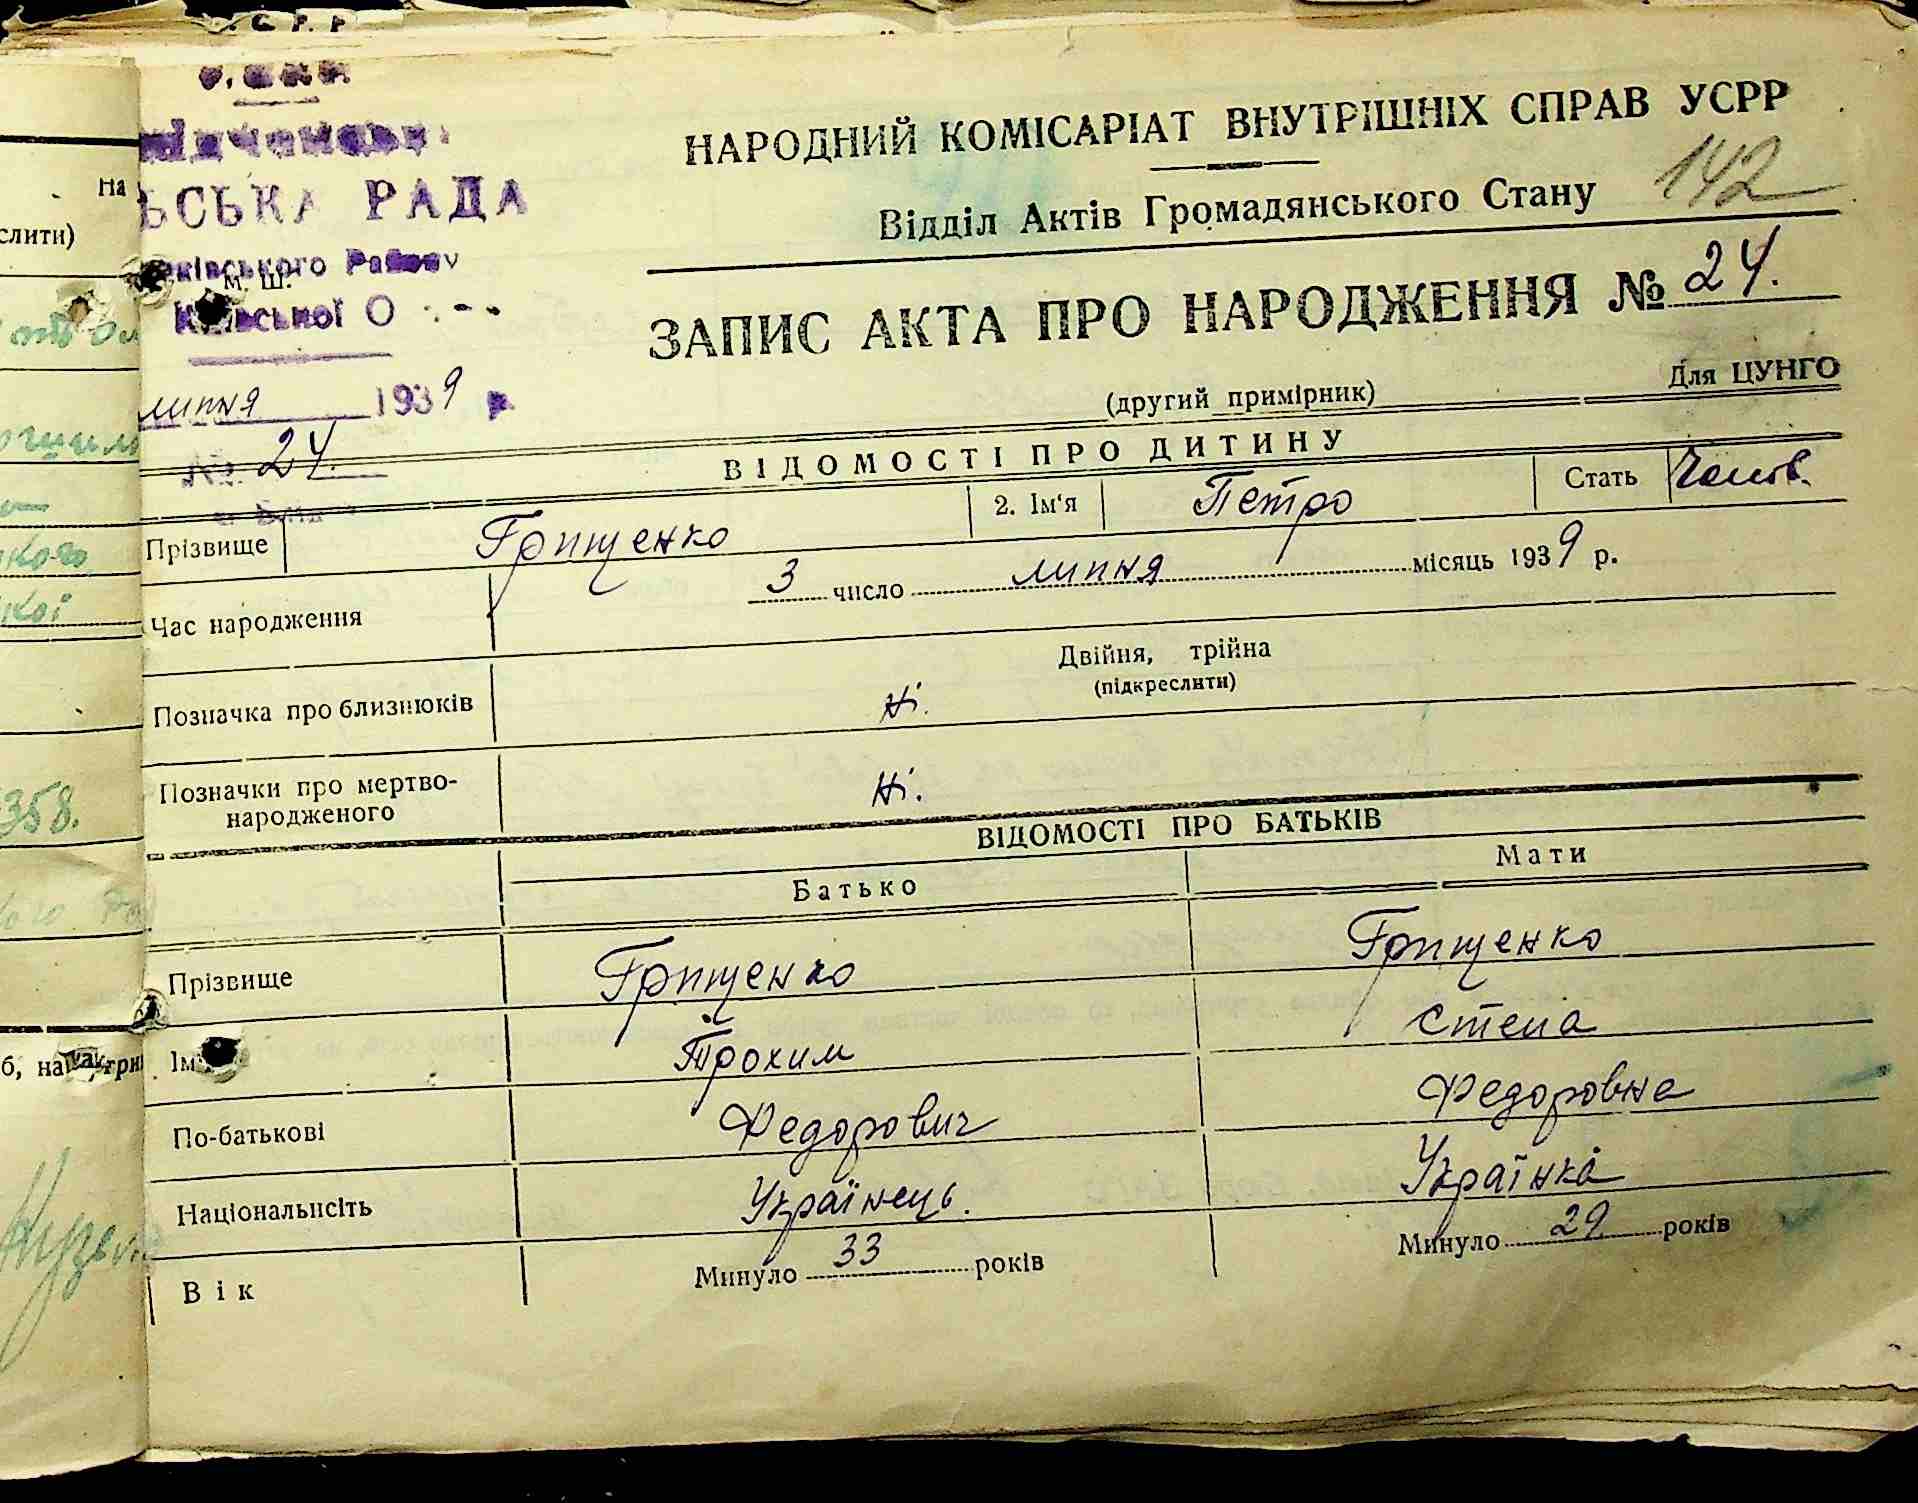 С. Р. Р
НАРОДНИЙ КОМІСАРІАТ ВНУТРІШНІХ СПРАВ УСРР
142
Відділ Актів Громадянського Стану
ЬСЬКА РАДА
ківського Району
М. Ш.
Київської О
ЗАПИС АКТА ПРО НАРОДЖЕННЯ № 24.
липня 1939 р.
(другий примірник)
Для ЦУНГО
№ 24.
ВІДОМОСТІ ПРО ДИТИНУ
Прізвище Грищенко 2. Ім'я Петро Стать Чолов.
Час народження 3 число липня місяць 1939 р.
Позначка про близнюків Ні. Двійня, трійна
(підкреслити)
Позначки про мертво-
народженого Ні.
ВІДОМОСТІ ПРО БАТЬКІВ
Батько Мати
Прізвище Грищенко Грищенко
Ім Трохим Степа
По-батькові Федорович Федоровна
Національність Українець. Українка
Вік Минуло 33 років Минуло 29 років
На
слити)
кого
кої
358.
б, на